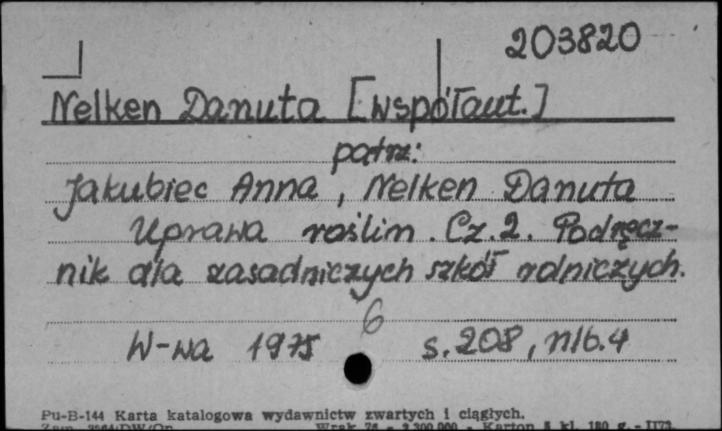 203820
Nelken Danuta [współaut.]
patrz:
Jakubiec Anna, Nelken Danuta
Uprawa roślin. Cz. 2. Podręcz-
nik dla zasadniczych szkół rolniczych.
6
W-wa 1975 s. 208, nlb. 4
Pu-B-144 Karta katalogowa wydawnictw zwartych i ciągłych.
Karton kl. 180 g.